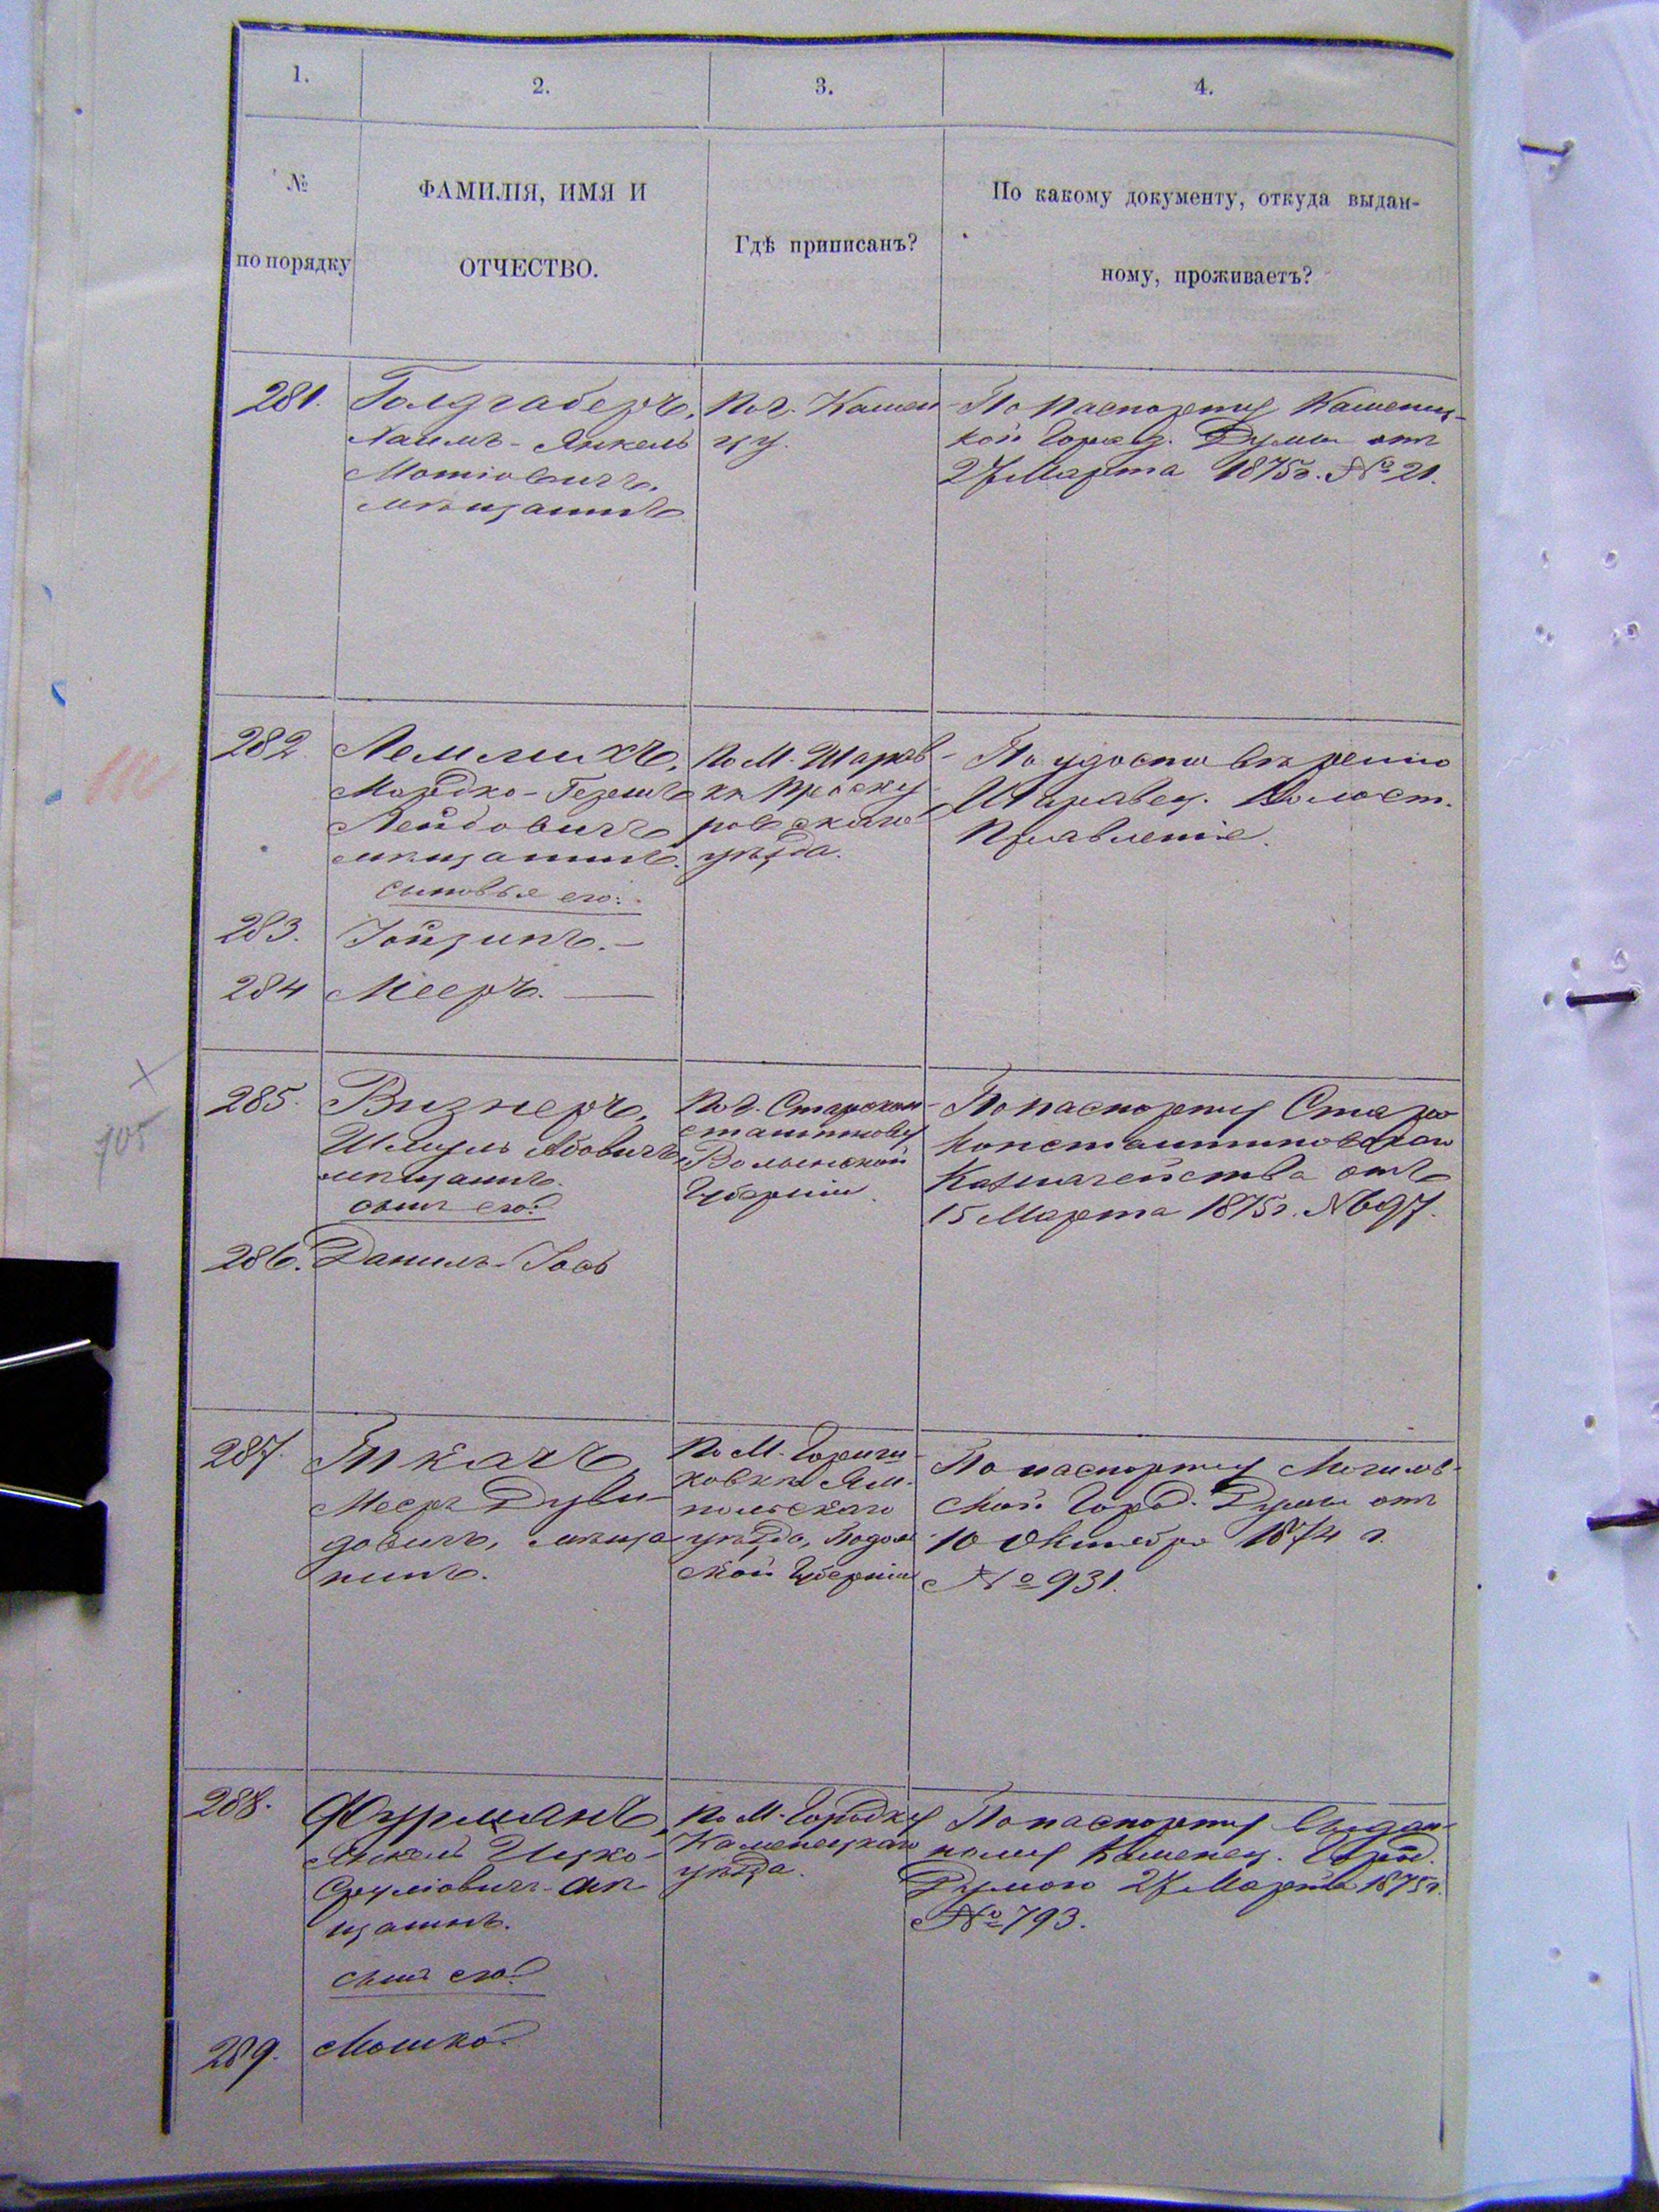 1.
2.
3.
4.
№
по порядку
ФАМИЛІЯ, ИМЯ И
ОТЧЕСТВО.
Гдѣ приписанъ?
По какому документу, откуда выдан-
ному, проживаетъ?
281.
Голдгаберъ,
Хаимъ-Янкель
Мотіовичъ,
мѣщанинъ
По г. Камен-
цу.
По паспорту Каменец-
кой Город. Думы отъ
27 Марта 1875 г. № 21.
282
Лемлихъ,
Мордко-Гершъ
Лейбовичъ
мѣщанинъ.
сыновья его:
По М. Шаров-
кѣ Проску-
ровскаго
уѣзда.
По удостовѣренію
Шаровец. Волост.
Правленія.
283.
Іойзипъ.—
284
Мееръ. —
285.
Визнеръ,
Шмуль Абовичъ
мѣщанинъ.
сынъ его:
По г. Старокон-
стантинову
Волынской
Губерніи.
По паспорту Старо
Константиновскаго
Казначейства отъ
15 Марта 1875 г. № 697.
286.
Данилъ-Іось
287.
Ткачъ,
Мееръ Дуви-
довичъ, мѣща
нинъ.
По М.
ковкѣ Ям-
польскаго
уѣзда, Подол
ской Губерніи
По паспорту Могилев-
ской Город. Думы отъ
10 Октября 1874 г.
№ 931.
288.
Фурманъ,
Янкель Ицко-
Сруліовичъ мѣ
щанинъ.
сынъ его:
По М. Городку
Каменецкаго
уѣзда.
По паспорту выдан-
ному Каменец. Город.
Думою 27 Марта 1875 г.
№ 793.
289.
Мошко
705